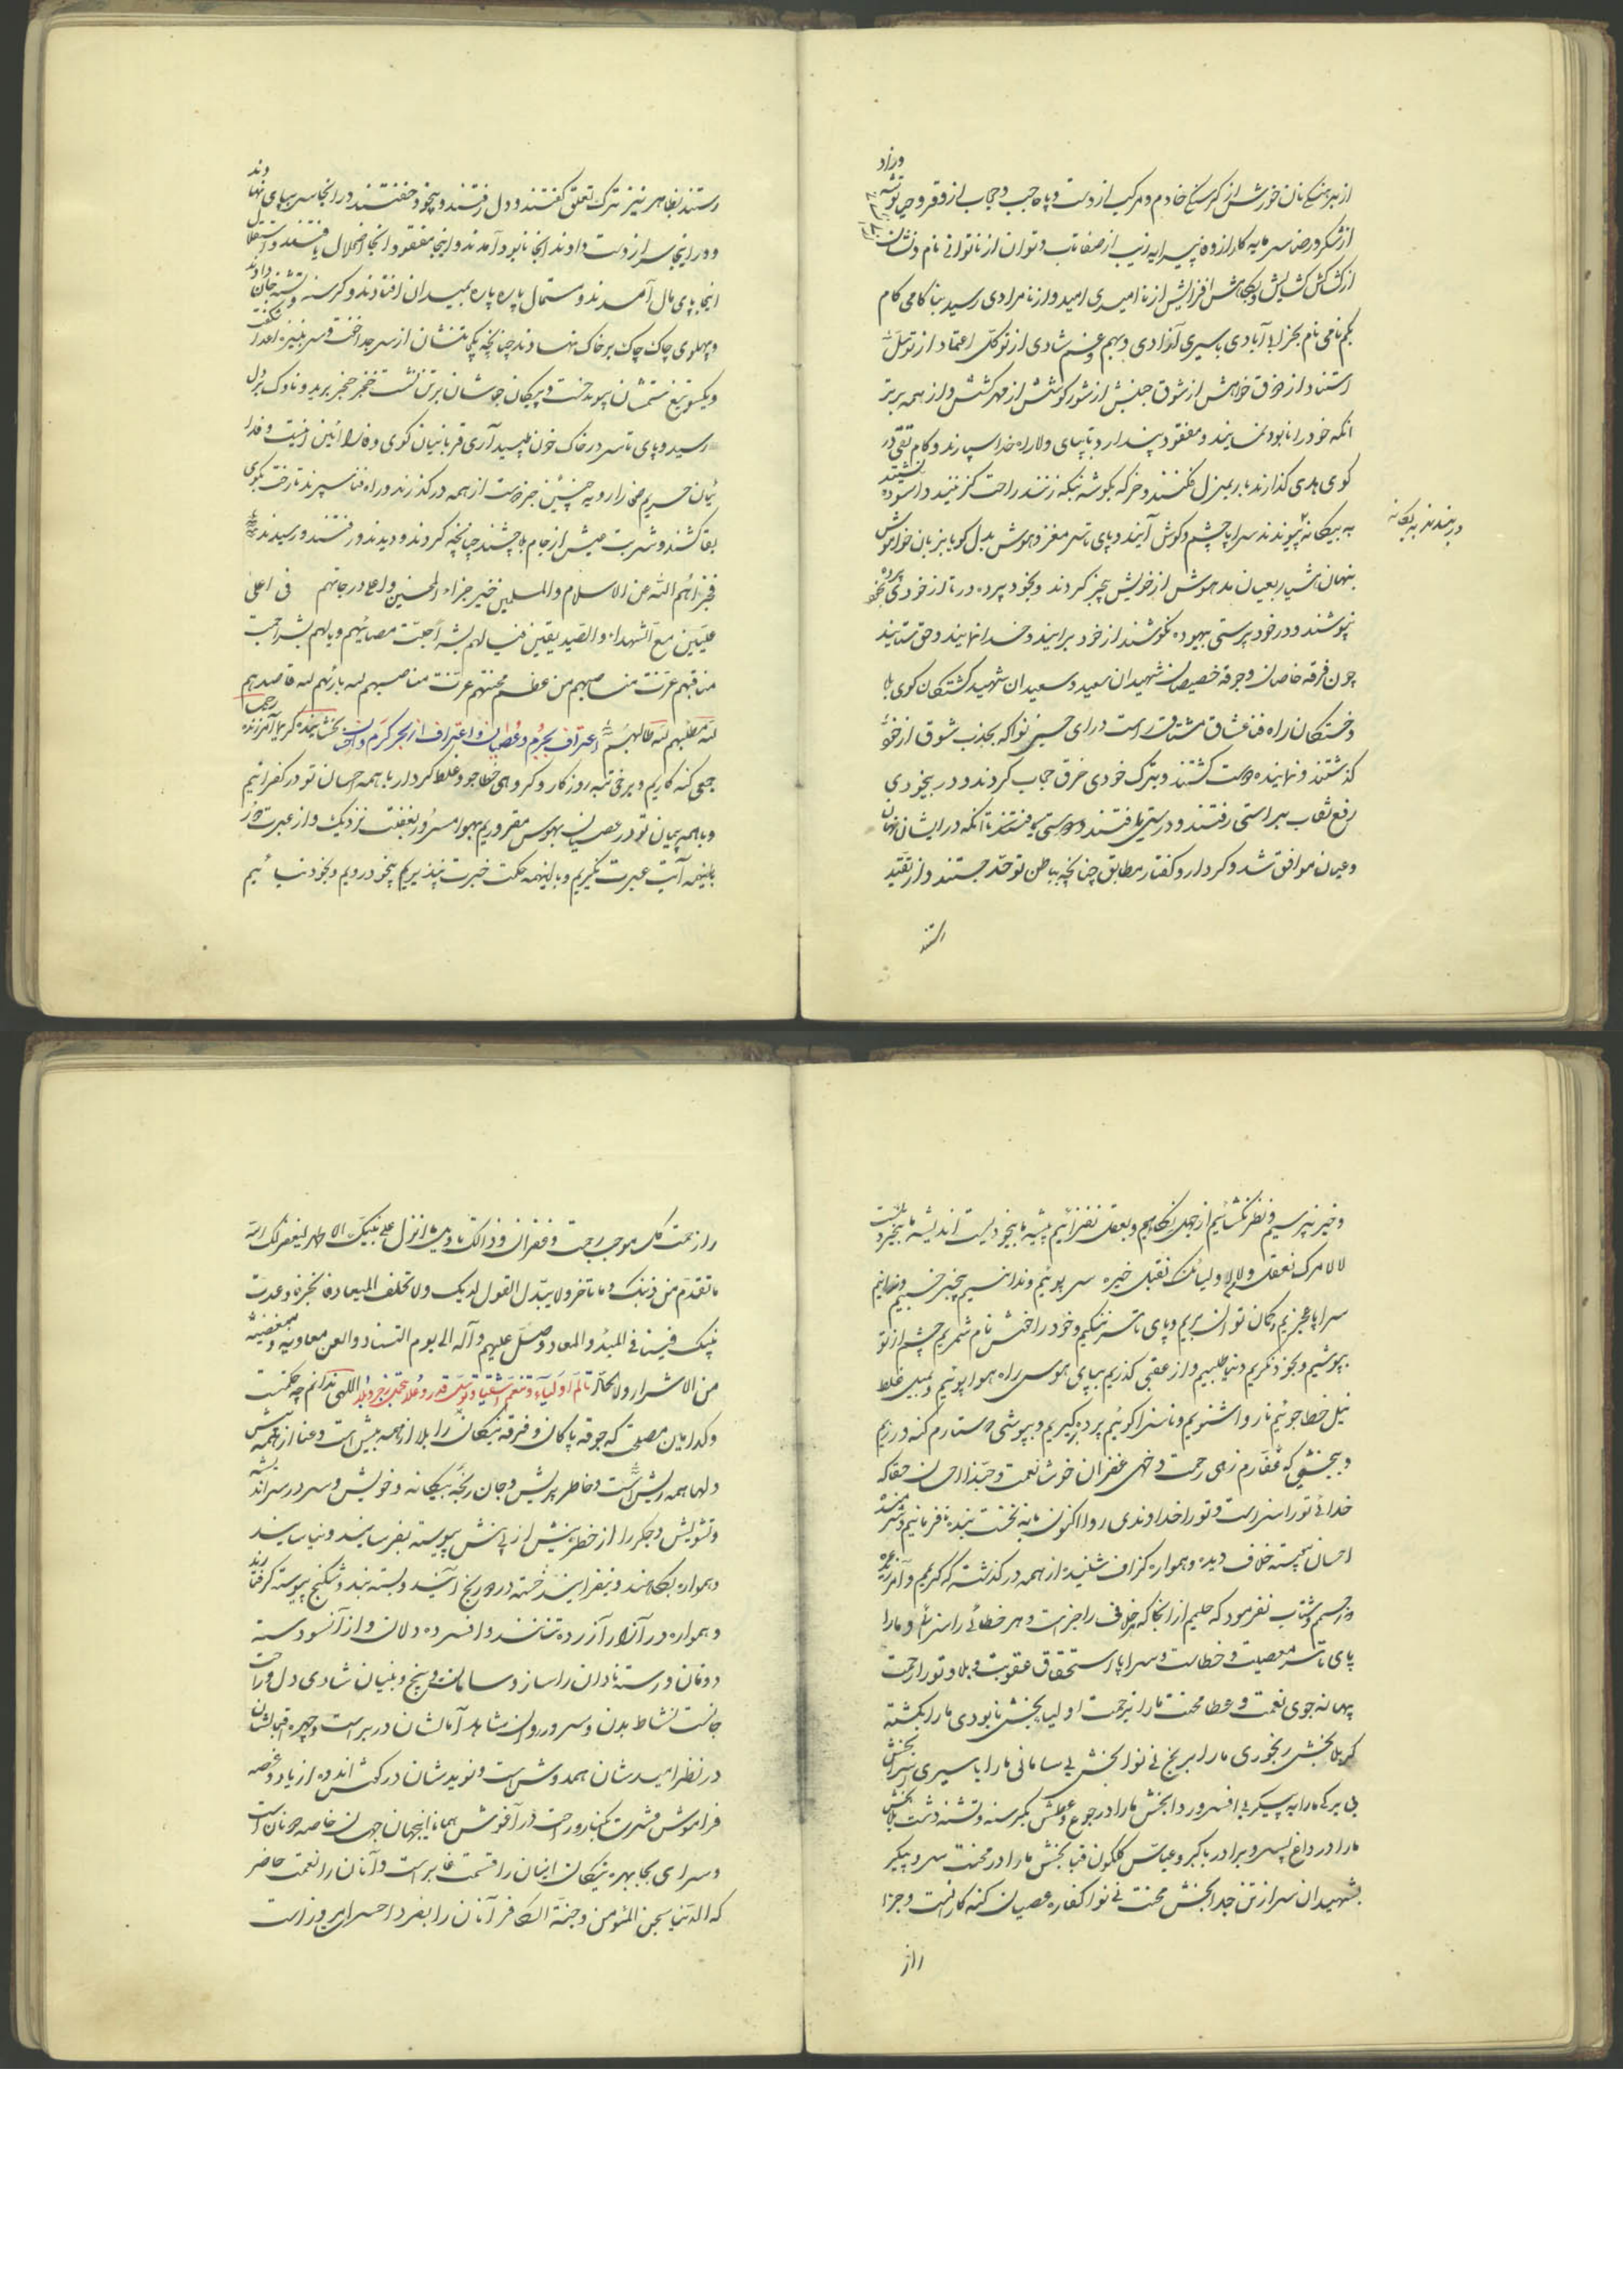 از برهنگی نان خورش از گرسنگی خادم و مرکب از دست و پا حاجب و حجاب از فقر و حیا توشه وزاد
از شکر و رضا سرمایه کار از وه پیرایه زیب از صفا تب و توان از ناتوانی نام و نشان
از کشاکش کشایش و بکاهش افزایش از نا امیدی امید و از نامرادی رسید بناکامی کام
بکم نامی نام بخرابی آبادی باسیری آزادی و بهم و غم شادی از توکل اعتماد از توسل
استناد از ذوق خواهش از شوق جنبش از شور کوشش از مهر کشش و از همه برتر
انکه خود را نابود نمایند و مفقود پندارد تا بپای ولا راه خدا سپارند و کام تقی در
کوی هدی گذارند بار بمنزل فکنند و خر که بگوشه نیکه زنند راحت گزینند و آسوده نشینند
به بیگانه نپیوندند سراپا چشم و گوش آیند و پای تا سر مغز و هوش بدل گویا بزبان خاموش
در نبندند به یگانه
بنهان هشیار بعیان مدهوش از خویش بیخبر گردند و بخود پرده در تا از خودی پرده
نپوشند و در خود پرستی بیهوده نکوشند از خود برایند و خدا نمایند و حق ستایند
چون فرقه خاصان و جوقه خصیصان شهیدان سعید و سعیدان شهید کشتگان کوی بلا
و خستگان راه فنا عشاق مشتاق درای حسینی نوا که بجذب شوق از خود
گذشتند و نماینده دوست گشتند و بترک خودی خرق حجاب کردند و در بیخودی
رفع نقاب براستی رفتند و درستی یافتند و دوستی تا آنکه در ایشان نهان
و عیان موافق شد و کردار و گفتار مطابق چنانچه بباطن توحد جستند و از تقید
رستند
رستند بظاهر نیز ترک تعلق گفتند و دل رفتند و بیخود خفتند در انجا سر بپای نهادند
و در اینجا سر از دست دادند انجا نابود آمدند و اینجا مفقود انجا اضمحلال یافتند و استقلال
اینجا پای مال آمدند و مستمال پاره پاره بمیدان افتادند و گرسنه و تشنه جان دادند
و پهلوی چاک چاک بر خاک نهادند چنانچه یکجا تنشان از سر جدا خفت و سر بنیزه اعدا شکفت
و یکسو تیغ ستمشان پیوند جست و پیکان جوشان بر تن نشست خنجر حنجر برید و ناوک بر دل
رسید و پای تا سر در خاک خون طپید آری قربانیان کوی وفا را ائین اینست و فدا
ئیان حریم صفا را رویه چنین جز دوست از همه درگذرند و راه فنا سپرند تا رخت بکوی
بقا کشند و شربت عیش از جام بلا چشند چنانچه کردند و دیدند و رفتند و رسیدند
فجزاهم الله عن الاسلام والمسلمین خیر جزاء المحسنین و اعلا درجاتهم فی اعلی
علیین مع الشهداء والصدیقین فیا لهم لله اجلت مصائبهم و یا لهم لله احبت
مناقبهم عزّت مناصبهم من عظم محنتهم عزّت مناصبهم لله بارئهم لله قاصدهم
لله مطلبهم لله طالبهم اعتراف بجرم و عصیان و اغتراف از بحر کرم و احسان بخشاینده کریما آمرزنده رحیما
جمعی گنه کاریم و برخی تبه روزگار و گروهی خطاجو و غلط کردار با همه احسان تو در کفرانیم
و با همه پیمان تو در عصیان بهوس مغروریم بهوا مسرور بغفلت نزدیک و از عبرت دور
باینهمه آیت عبرت نگیریم و با اینهمه حکمت خبرت نپذیریم بیخود رویم و بخود نیائیم
و خیر نپرسیم و نظر نگشائیم از جهل نکاهیم و بعقل نفزائیم پیشه ما بیخودیست اندیشه ما بیخردیست
لا لامرک نعقل ولا لاولیائک نقبل خیره سر پوئیم و ندانسیم بیخبر خسبیم و نخوانیم
سراپا عجزیم و گمان توان بریم و پای تا سر ننگیم و خود را خوش نام شمریم چشم از تو
بپوشیم و بخود نگریم دنیا طلبیم و از عقبی گذریم بپای هوس راه هوا پوئیم و بمیل غلط
نیل خطا جوئیم ناروا شنویم و ناسزا گوئیم پرده بر گیریم و بپوشی که ستارم گنه ورزیم
و ببخشی که غفارم زهی رحمت و خهی غفران خوشا نعمت و حبذا احسان حقا که
خدائی تو را سزاست و تو را خداوندی روا اکنون نه بنخست بنده نافرمانیم و شرمنده
احسان پیوسته خلاف دیده و همواره گزاف شنیده از همه درگذشته که کریم و آمرزنده
و رحیم و شتاب نفرمود که حلیم از انجا که خلاف را جزاست و هر خطائی را سزائی و ما را
پای تا سر معصیت و خطاست و سراپا استحقاق عقوبت و بلا و تو را رحمت
بهانه جوی نعمت و عطا محنت ما را برحمت اولیا بخش نابودی ما را بکشته
کربلا بخش رنجوری ما را برنج بی نوا بخش بی سامانی ما را باسیری اسرا بخش
بی برگی ما را به پیکر بی افسر و ردا بخش ما را در جوع و عطش بگرسنه و تشنه دشت بلا بخش
ما را در داغ پسر و برادر باکبر و عباس گلگون قبا بخش ما را در محنت سر و پیکر
بشهیدان سر از تن جدا بخش محنت نی نوا کفاره عصیان گنه کارانست و جزا
و از
و از رحمت کل موجب رحمت و غفران و ذالک ما وعدته و انزل علی نبیک الاطهر لیغفر لک الله
ما تقدم من ذنبک و ما تاخر ولا یبدل القول لدیک ولا تخلف المیعاد فانجز ما وعدت
نبیک فینا فی المبدء والمعاد وصل علیهم وآله الی یوم التناد والعن معادیه و مبغضیه
من الاشرار و لا تحالّ تالم اولیاء و تنعم اشقیا و توسل بقدر و علا بتجلی بزجر و بلا اللهی ندانم چه حکمتست
و کدامین مصلحت که جوقه پاکان و فرقه نیکان را بلا از همه بیش است و عنا از همه پیش
دلها همه ریش است و خاطر پریش و جان رنجه بیگانه و خویش و سر در سر اندیشه
و تشویش و جگر را از خطر نیش از پی نش پیوسته بفرسایند و نیاسایند
و همواره بکاهند و نیفزایند خسته درد و رنج آیند و بسته بند و شکنج پیوسته گرفتارند
و همواره در آزار آزرده تنانند و افسرده دلان و از آنسو دسته
دونان و رسته نادان را ساز و سامان و پنج و بنیان شادی دل و راحت
جانست نشاط بدن و سرور روان شاهد آمالشان در بر است و چهره اقبالشان
در نظر امیدشان همدوش است و نویدشان در گوش اندوه از یاد و غصه
فراموش عشرت بکنار و راحت در آغوش همانا اینجهان جهان خاصه دونان است
و سرای بجا بهره نیکان اینان را قسمت غایبست و آنان را نعمت حاضر
که الدنیا سجن المؤمن و جنة الکافر آنان را بفردا حسرای امروز است